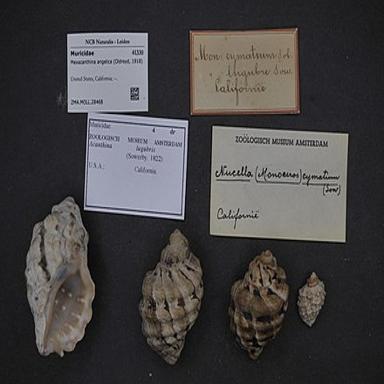 NCB Naturalis - Leiden
Muricidae 41330
Mexacanthina angelica (Oldroyd, 1918)
United States, California; --.
ZMA.MOLL.28468
Mon. cymatum Sol.
lugubre Sow.
Californie
Muricidae 4 dr
ZOOLOGISCH MUSEUM AMSTERDAM
Acanthina lugubris
(Sowerby, 1822)
U.S.A.: California.
ZOÖLOGISCH MUSEUM AMSTERDAM
Nucella (Monoceros) cymatum
(Sow)
Californië